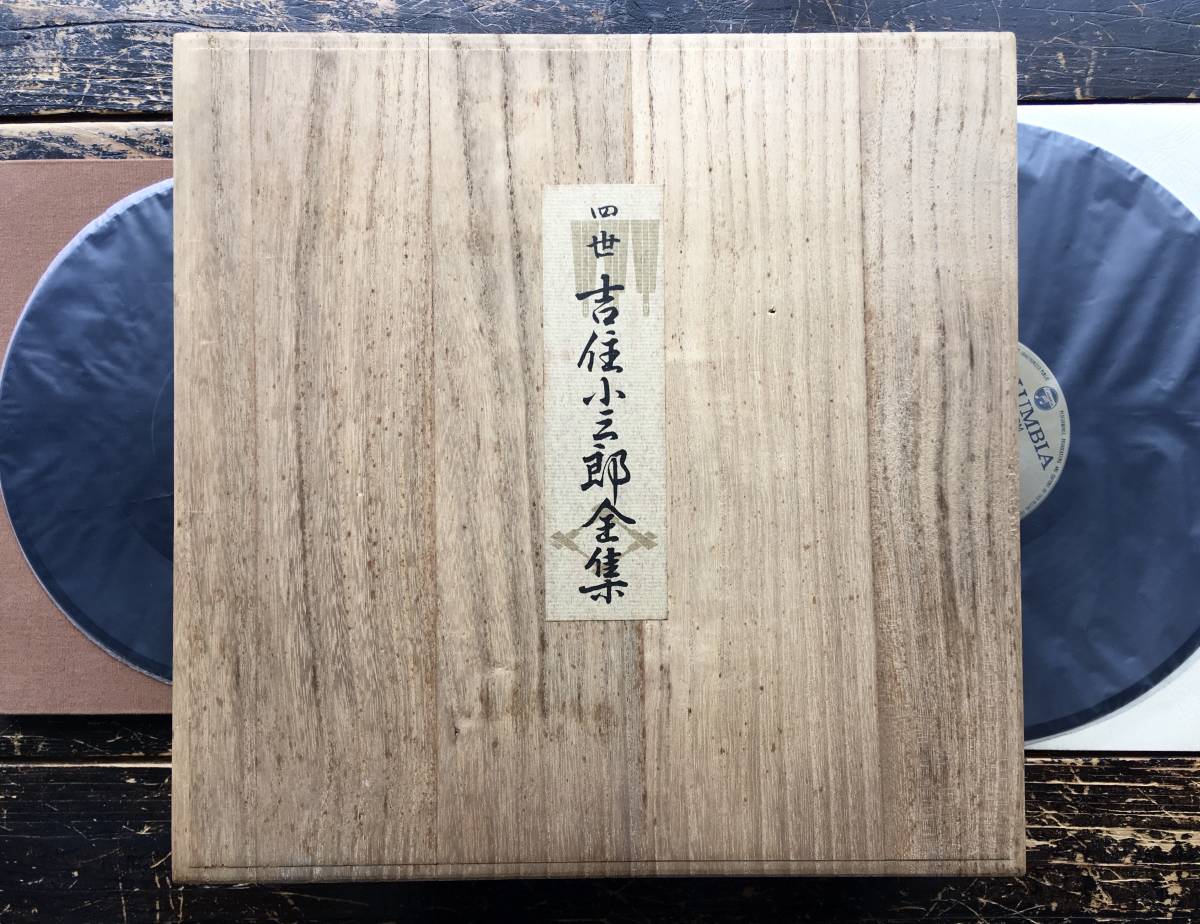 四世 吉住小三郎全集
COLUMBIA